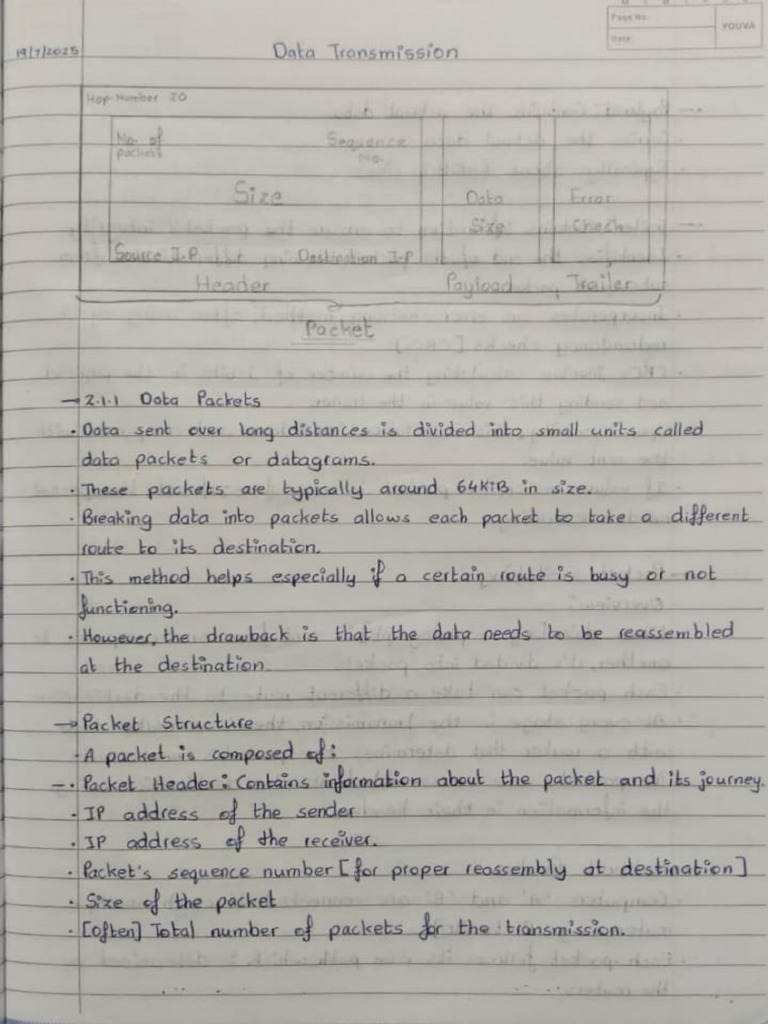 Page No.
Date:
YOUVA
19/7/2025
Data Transmission
Hop Number 20
No. of packets
Sequence No.
Size
Data Size
Error Check
Source I.P
Destination I.P
Header
Payload
Trailer
Packet
→ 2.1.1 Data Packets
· Data sent over long distances is divided into small units called
data packets or datagrams.
· These packets are typically around 64KiB in size.
· Breaking data into packets allows each packet to take a different
route to its destination.
· This method helps especially if a certain route is busy or not
functioning.
· However, the drawback is that the data needs to be reassembled
at the destination.
→ Packet Structure
· A packet is composed of:
–· Packet Header: Contains information about the packet and its journey.
· IP address of the sender
· IP address of the receiver.
· Packet's sequence number [for proper reassembly at destination]
· Size of the packet
· [often] Total number of packets for the transmission.